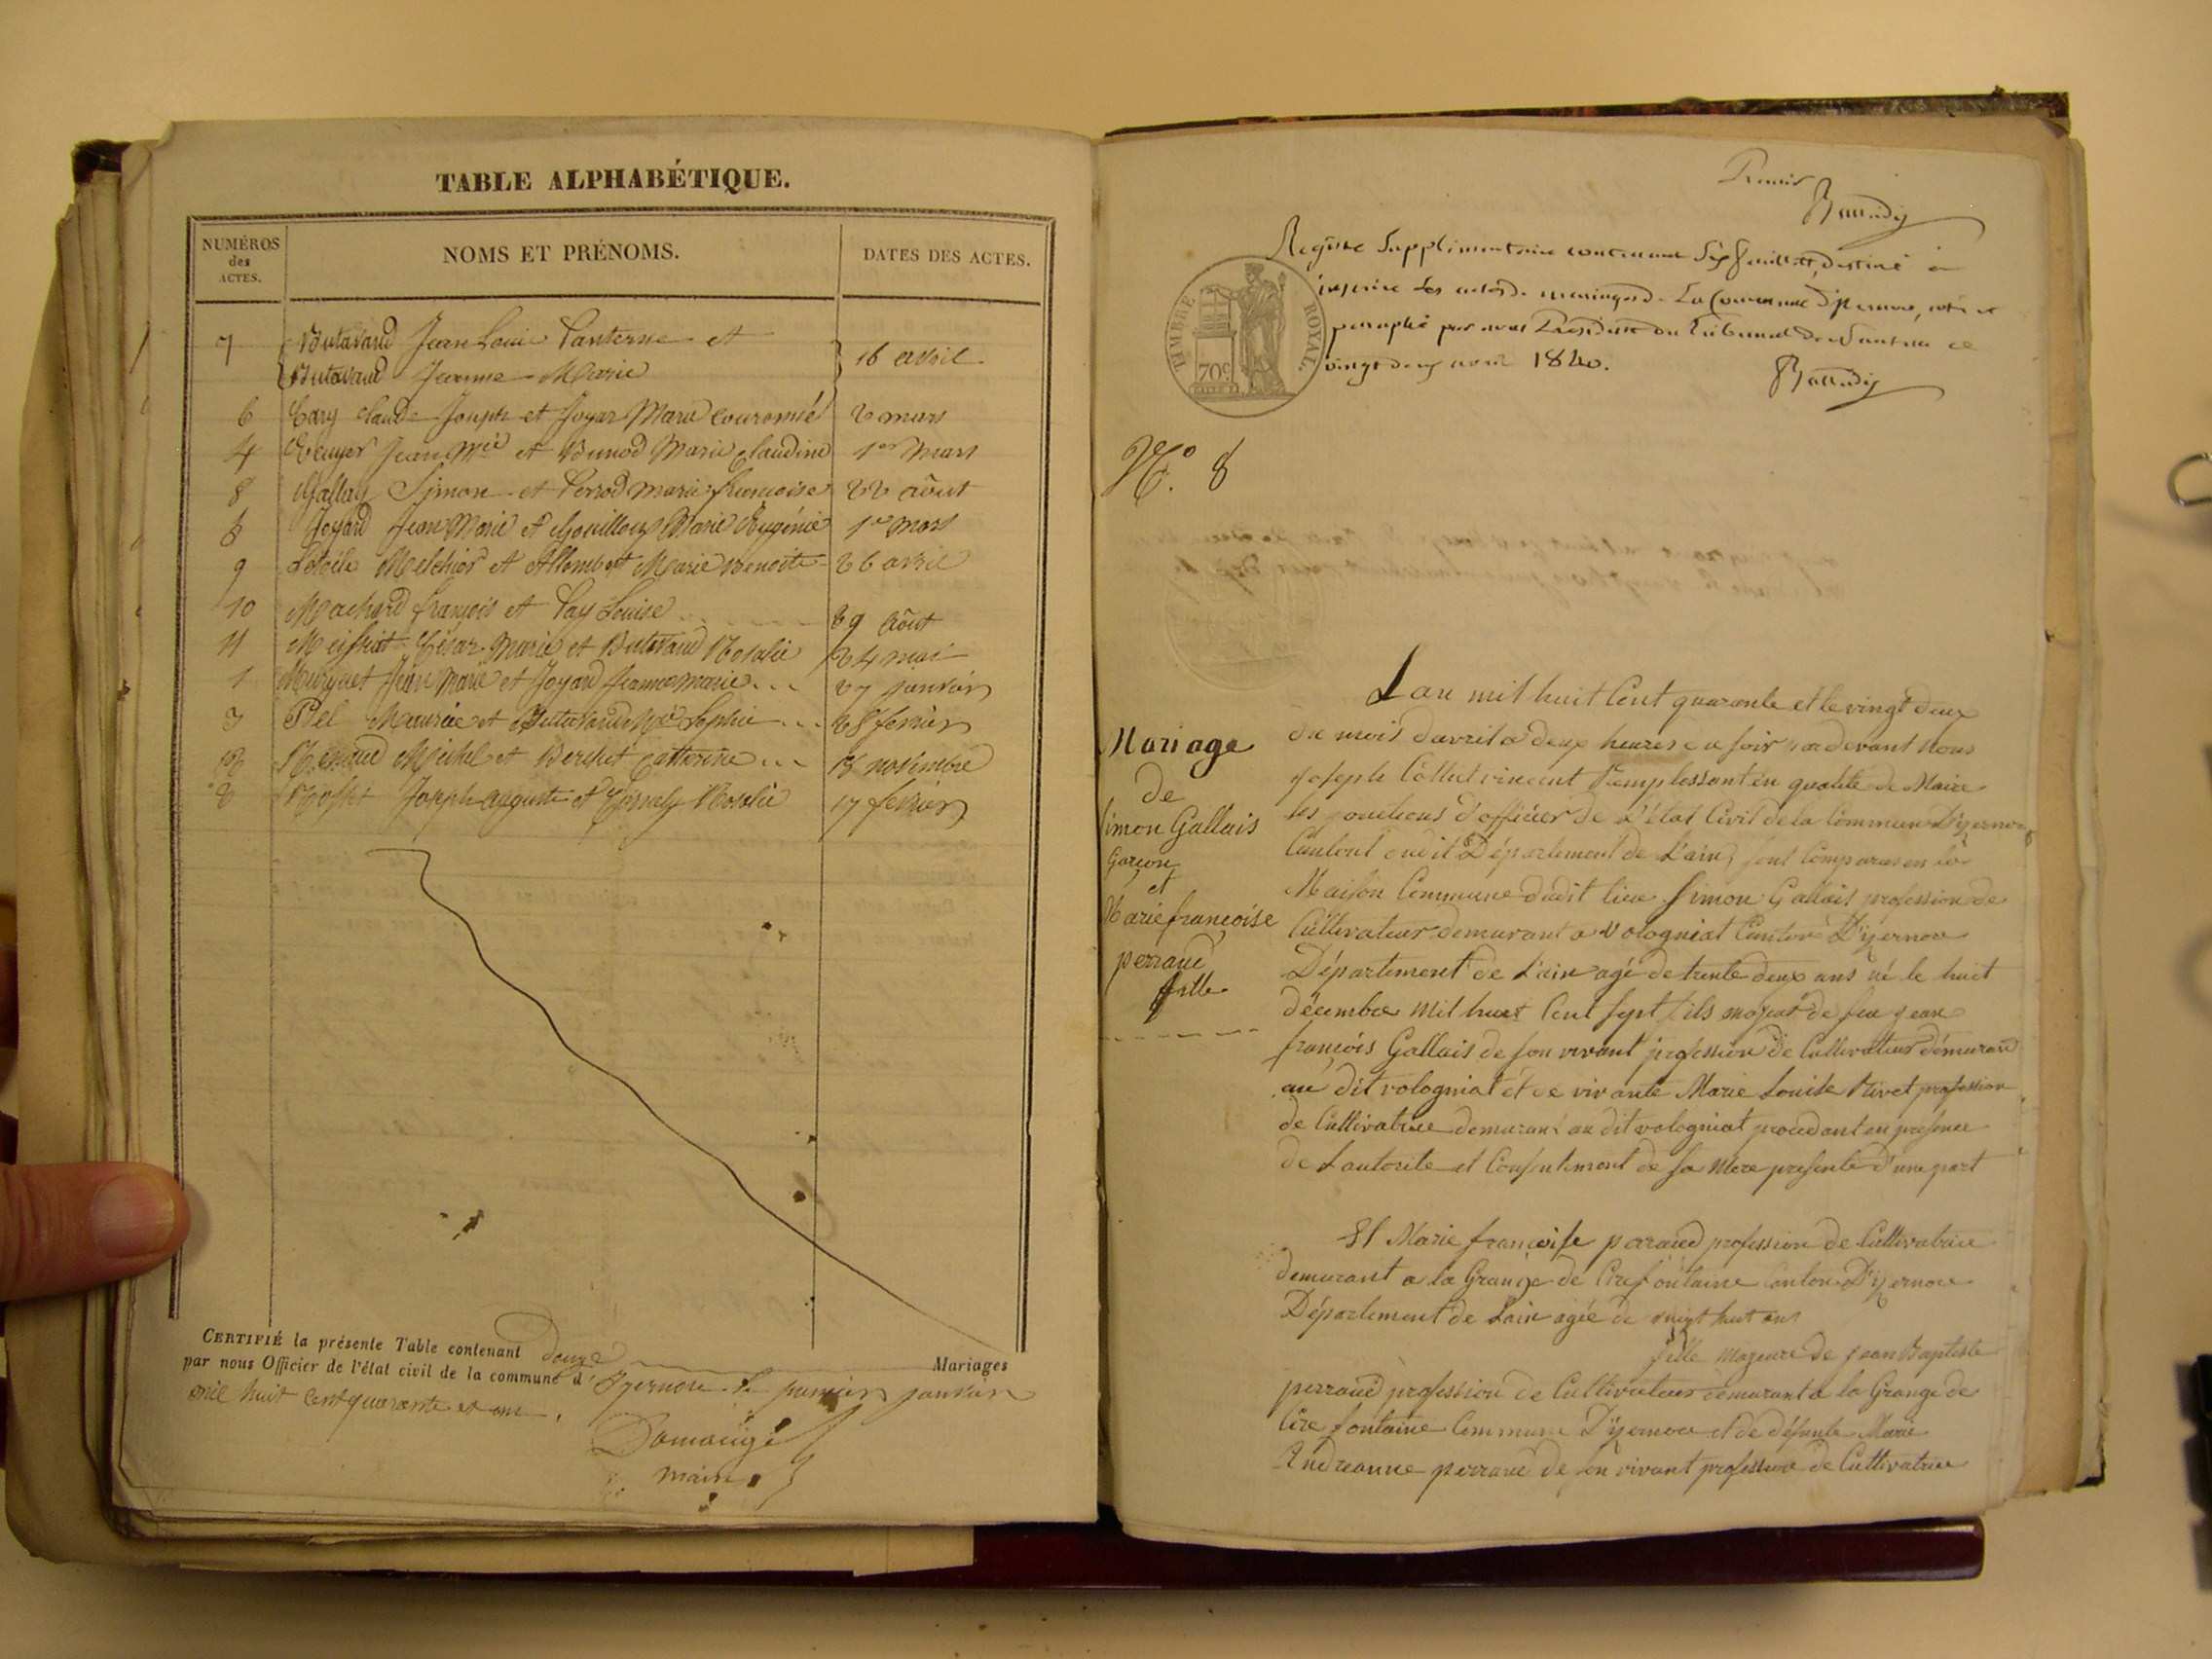 TABLE ALPHABÉTIQUE.
NUMÉROS
des
ACTES.
NOMS ET PRÉNOMS.
DATES DES ACTES.
7 Butavand Jean Louis Lanterne et
Butavand Jeanne Marie 16 avril
6 claude Joseph et Joyar Marie 2 mars
4 Jean Mie et Bunod Marie Claudine 1er Mars
8 Gallay Simon et Perrod marie françoise 22 août
5 Joyard Jean Marie et Marie Eugénie 1er mars
9 Letoile Melchior et Allombert Marie Benoite 26 avril
10 Machard françois et Pay Louise 29 août
11 César Marie et Butavand Rosalie 24 mai
1 Jean Marie et Joyard Jeanne marie 27 janvier
3 Piel Maurice et Butavand Mie Sophie 28 fevrier
12 Renaud Michel et Berchet Catherine 18 novembre
2 Joseph auguste et Rosalie 17 fevrier
CERTIFIÉ la présente Table contenant douze Mariages
par nous Officier de l'état civil de la commune d' Izernore le premier janvier
mil huit cent quarante et un.
maire
Premier
Registre Supplimentaire contenant Six feuillets, destiné à
inscrire les actes de mariages de La Commune d'izernore, coté et
paraphé par nous Président du Tribunal de Nantua ce
vingt deux avril 1840.
TIMBRE ROYAL.
70c
N.o 8
Mariage
de
Simon Gallais
Garçon
et
Marie françoise
perraud
fille
Lan mil huit Cent quarante et le vingt deux
du mois davril a deux heures du soir pardevant Nous
joseph Colliet vincent Remplessant en qualité de Maire
les fonctions d'officier de L'état Civil de la Commune D'izernore
Canton dudit Département de L'ain, sont Comparus en la
Maison Commune dudit lieu Simon Gallais profession de
Cultivateur demurant a Volognat Canton D'izernore
Département de L'ain agé de trente deux ans né le huit
décembre Mil huit Cent sept fils majeur de feu jean
françois Gallais de son vivant profession de Cultivateur démurant
au dit volognat et de vivante Marie Louise Rivet profession
de Cultivatrice demurant au dit volognat procedant en presence
de Lautorite et Consentement de sa Mere presente d'une part
Et Marie françoise perraud profession de Cultivatrice
demurant a la Grange de Cire fontaine Canton D'izernore
Département de Lain agée de vingt huit ans
fille Majeure de jean Baptiste
perraud profession de Cultivateur demurant a la Grange de
Cire fontaine Commune D'izernore et de défunte Marie
Andreanne perraud de son vivant profession de Cultivatrice